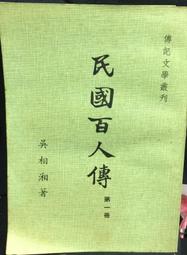 傳記文學叢刊
民國百人傳
第一冊
吳相湘著